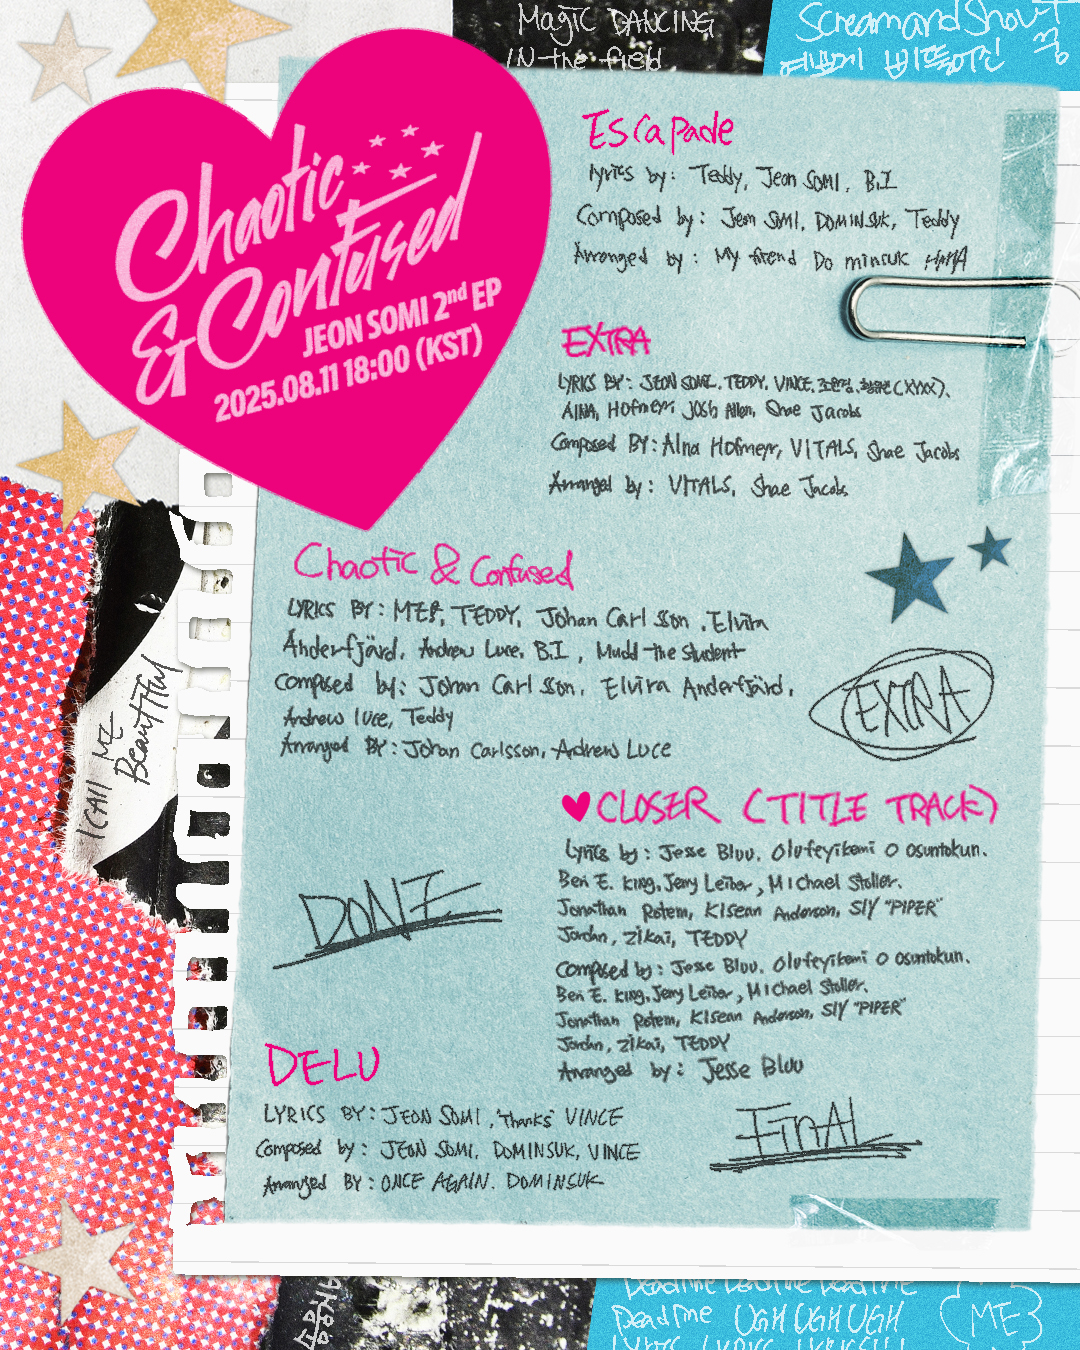 Magic DANCING
IN the field
Scream and Shout
예쁘게 삐뚤어진
Chaotic
& Confused
JEON SOMI 2nd EP
2025.08.11 18:00 (KST)
Escapade
lyrics by: Teddy, Jeon SOMI, B.I
Composed by: Jeon SOMI, DOMINSUK, Teddy
Arranged by: My friend Do minsuk HAHA
EXTRA
LYRICS BY: JEON SOMI, TEDDY, VINCE, (XYXX),
AINA, Hofmeyr, Josh Allen, Shae Jacobs
Composed BY: AIna Hofmeyr, VITALS, Shae Jacobs
Arranged by: VITALS, Shae Jacobs
Chaotic & Confused
LYRICS BY: ME!, TEDDY, Johan Carlsson, Elvira
Anderfjärd, Andrew Luce, B.I, Mudd the student
Composed by: Johan Carlsson, Elvira Anderfjärd,
Andrew luce, Teddy
Arranged BY: Johan Carlsson, Andrew Luce
EXTRA
I CAll ME
Beautiful
♥ CLOSER (TITLE TRACK)
Lyrics by: Jesse Bluu, Olufeyikemi O Osuntokun,
Ben E. King, Jerry Leiber, Michael Stoller,
Jonathan Rotem, Kisean Anderson, Sly "PIPER"
Jordan, Zikai, TEDDY
Composed by: Jesse Bluu, Olufeyikemi O Osuntokun,
Ben E. King, Jerry Leiber, Michael Stoller,
Jonathan Rotem, Kisean Anderson, Sly "PIPER"
Jordan, Zikai, TEDDY
Arranged by: Jesse Bluu
DONE
DELU
LYRICS BY: JEON SOMI, "Thanks" VINCE
Composed by: JEON SOMI, DOMINSUK, VINCE
Arranged BY: ONCE AGAIN, DOMINSUK
FinAl
Deadline Deadline Deadline
Deadline UGH UGH UGH
ME